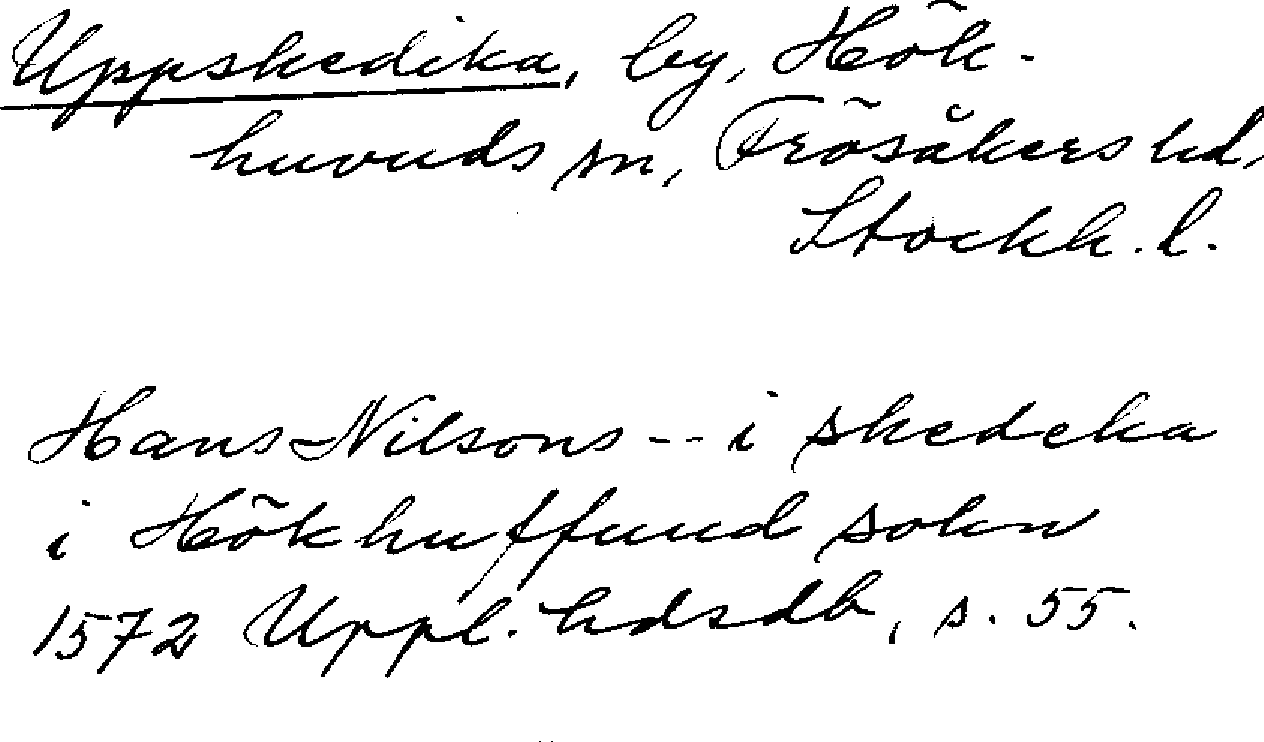 Uppskedika, by, Hök-
huvuds sn, Frösåkers hd,
Stockh. l.
Hans Nilsons -- i skedeka
i Hökhuffuud sokn
1572 Uppl. hdsdb, s. 55.